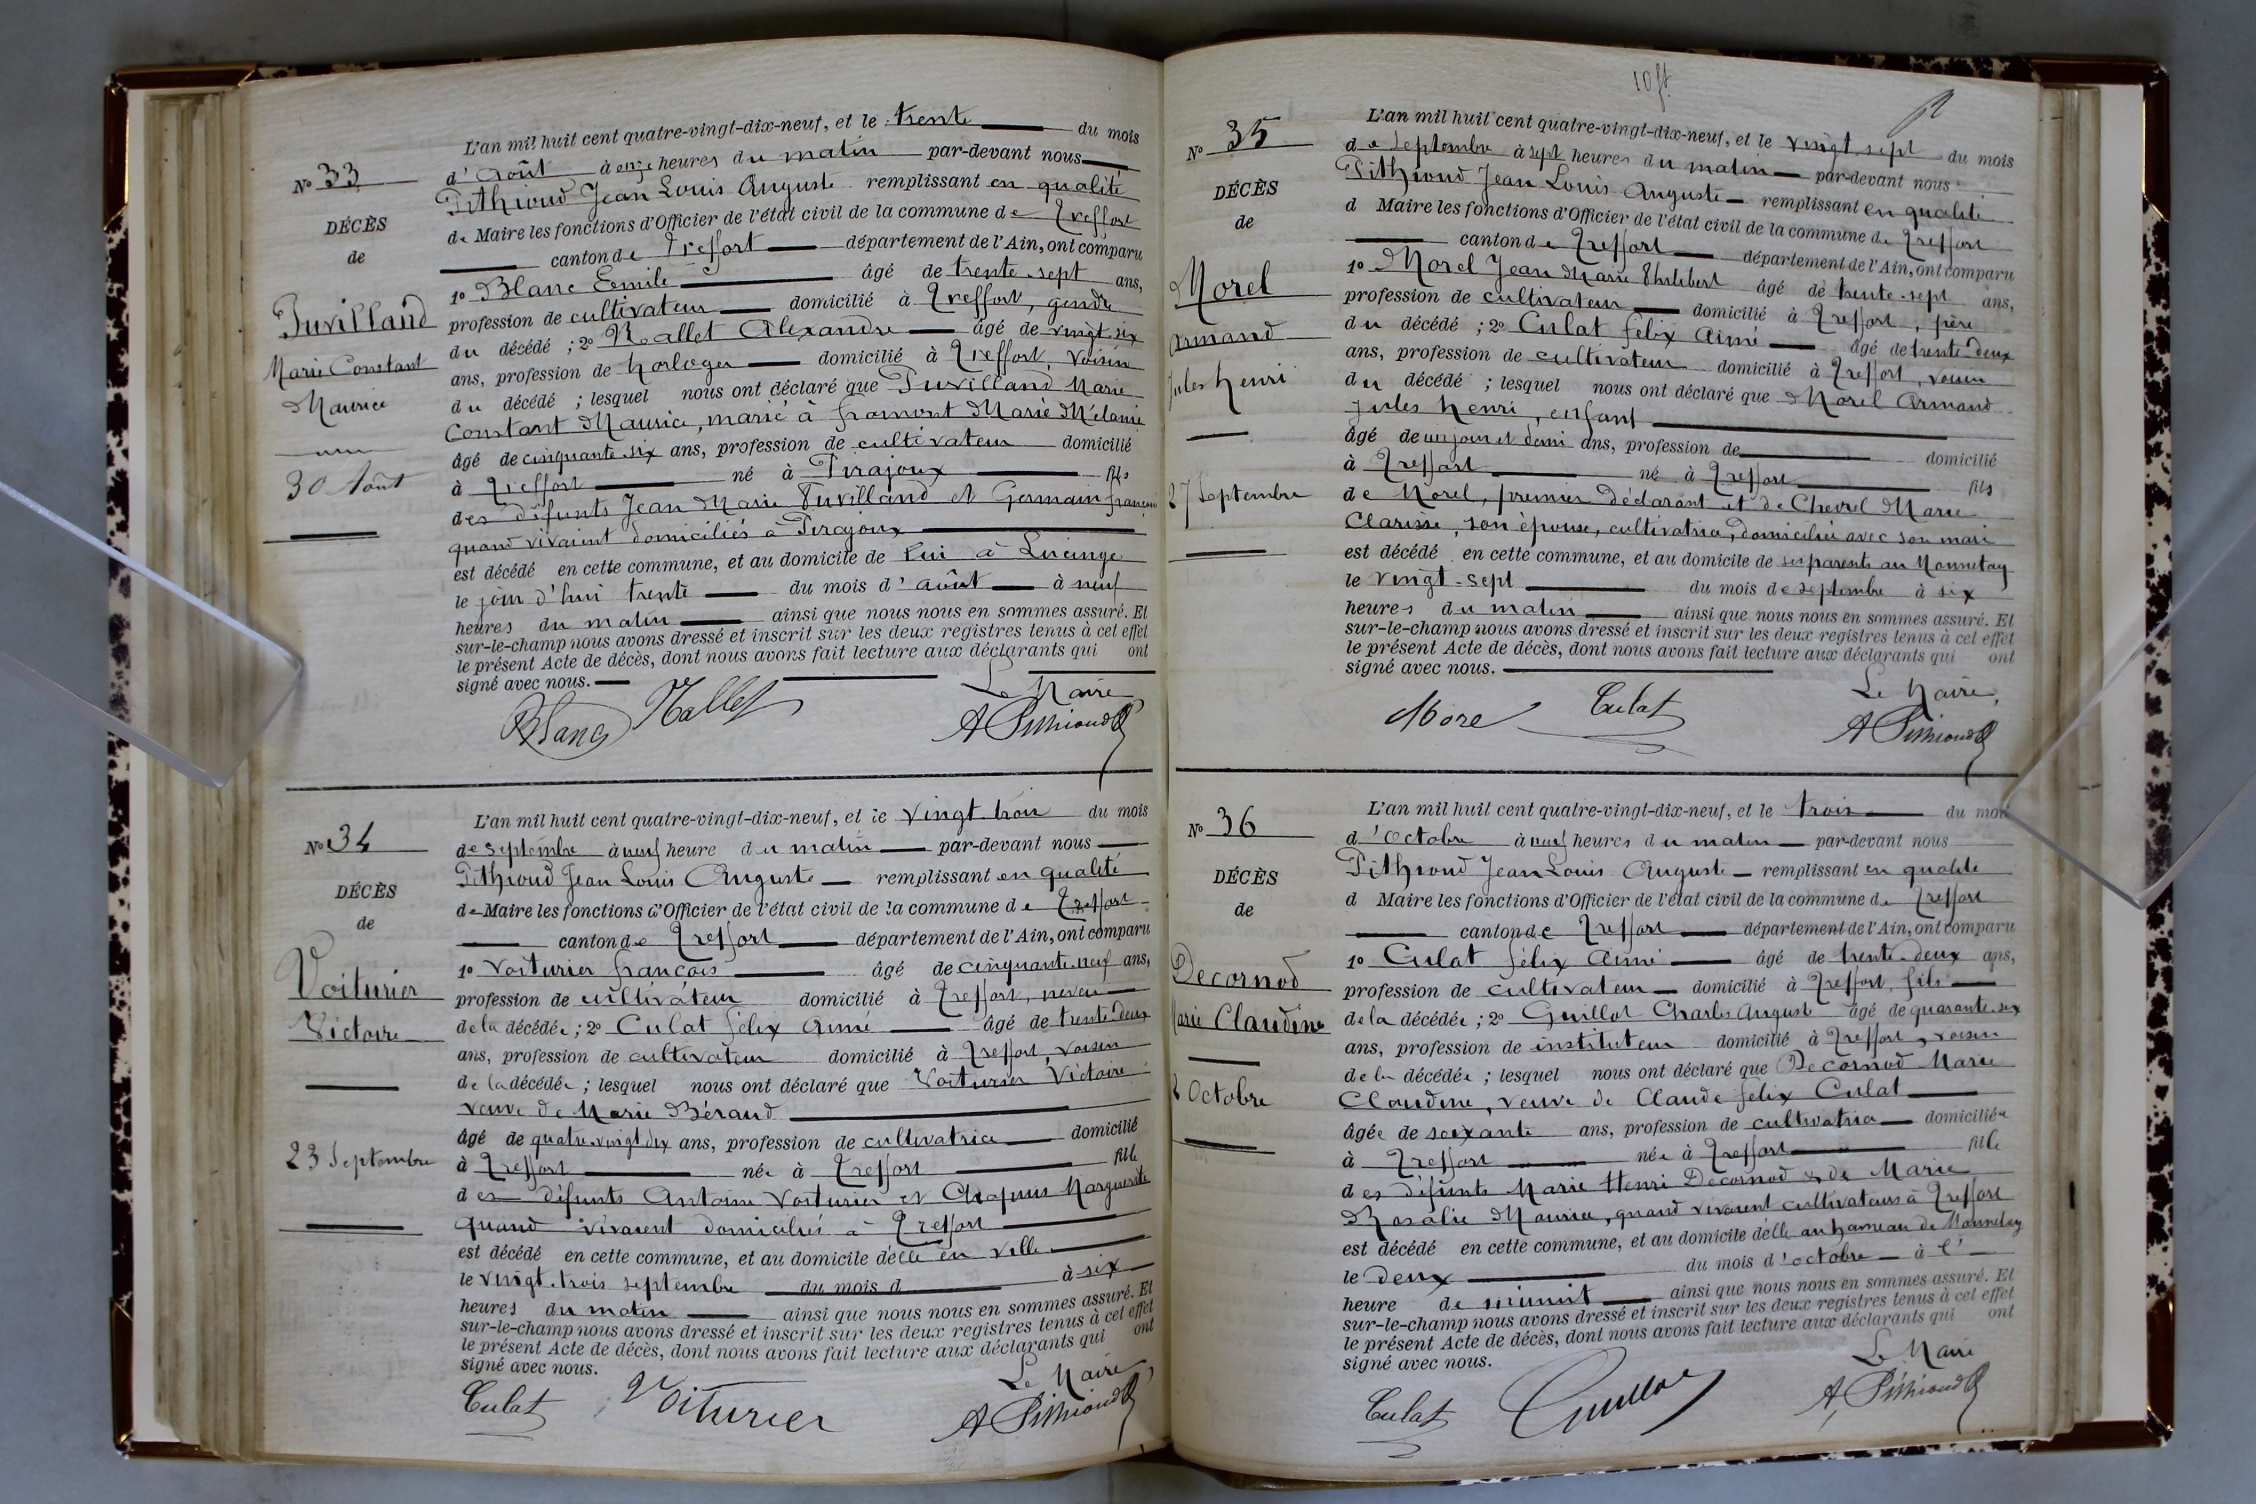 L'an mil huit cent quatre-vingt-dix-neuf, et le trente du mois
d'Août à onze heures du matin par-devant nous
Pithioud Jean Louis Auguste remplissant en qualité
de Maire les fonctions d'Officier de l'état civil de la commune de Treffort
canton de Treffort département de l'Ain, ont comparu
1o Blanc Emile âgé de trente-sept ans,
profession de cultivateur domicilié à Treffort, gendre
du décédé ; 2o Rallet Alexandre âgé de vingt-six
ans, profession de horloger domicilié à Treffort, voisin
du décédé ; lesquel nous ont déclaré que Puvilland Marie
Constant Maurice, marié à framont Marie Mélanie
âgé de cinquante-six ans, profession de cultivateur domicilié
à Treffort né à Pirajoux fils
des défunts Jean Marie Puvilland et Germain françoise
quand vivaient domiciliés à Pirajoux
est décédé en cette commune, et au domicile de lui à Lucinge
le jour d'hui trente du mois d'août à neuf
heures du matin ainsi que nous nous en sommes assuré. Et
sur-le-champ nous avons dressé et inscrit sur les deux registres tenus à cet effet
le présent Acte de décès, dont nous avons fait lecture aux déclarants qui ont
signé avec nous.
Blanc Rallet Le Maire
A Pithioud
No 33
DÉCÈS
de
Puvilland
Marie Constant
Maurice
30 Août
L'an mil huit cent quatre-vingt-dix-neuf, et le vingt trois du mois
de septembre à neuf heure du matin par-devant nous
Pithioud Jean Louis Auguste remplissant en qualité
de Maire les fonctions d'Officier de l'état civil de la commune de Treffort
canton de Treffort département de l'Ain, ont comparu
1o Voiturier françois âgé de cinquante-neuf ans,
profession de cultivateur domicilié à Treffort, neveu
de la décédée ; 2o Culat félix Aimé âgé de trente deux
ans, profession de cultivateur domicilié à Treffort, voisin
de la décédée ; lesquel nous ont déclaré que Voiturier Victoire
veuve de Marie Béraud
âgé de quatre-vingt dix ans, profession de cultivatrice domicilié
à Treffort née à Treffort fille
des défunts Antoine Voiturier et Chapuis Marguerite
quand vivaient domiciliés à Treffort
est décédé en cette commune, et au domicile d'elle en ville
le vingt-trois septembre du mois d à six
heures du matin ainsi que nous nous en sommes assuré. Et
sur-le-champ nous avons dressé et inscrit sur les deux registres tenus à cet effet
le présent Acte de décès, dont nous avons fait lecture aux déclarants qui ont
signé avec nous.
Le Maire
Culat Voiturier A Pithioud
No 34
DÉCÈS
de
Voiturier
Victoire
23 Septembre
L'an mil huit cent quatre-vingt-dix-neuf, et le vingt sept du mois
de septembre à sept heures du matin par-devant nous
Pithioud Jean Louis Auguste remplissant en qualité
d Maire les fonctions d'Officier de l'état civil de la commune de Treffort
canton de Treffort département de l'Ain, ont comparu
1o Morel Jean Marie âgé de trente-sept ans,
profession de cultivateur domicilié à Treffort, père
du décédé ; 2o Culat félix Aimé âgé de trente deux
ans, profession de cultivateur domicilié à Treffort, voisin
du décédé ; lesquel nous ont déclaré que Morel Armand
Jules Henri, enfant
âgé de un jour et demi ans, profession de domicilié
à Treffort né à Treffort fils
de Morel, premier déclarant et de Chevrel Marie
Clarisse, son épouse, cultivatrice, domiciliée avec son mari
est décédé en cette commune, et au domicile de ses parents au Monnetay
le vingt-sept du mois de septembre à six
heures du matin ainsi que nous nous en sommes assuré. Et
sur-le-champ nous avons dressé et inscrit sur les deux registres tenus à cet effet
le présent Acte de décès, dont nous avons fait lecture aux déclarants qui ont
signé avec nous.
Morel Culat Le Maire,
A Pithioud
No 35
DÉCÈS
de
Morel
Armand
Jules Henri
27 Septembre
L'an mil huit cent quatre-vingt-dix-neuf, et le trois du mois
d'Octobre à neuf heures du matin par-devant nous
Pithioud Jean Louis Auguste remplissant en qualité
d Maire les fonctions d'Officier de l'état civil de la commune de Treffort
canton de Treffort département de l'Ain, ont comparu
1o Culat félix Aimé âgé de trente-deux ans,
profession de cultivateur domicilié à Treffort, fils
de la décédée ; 2o Guillot Charles Auguste âgé de quarante-six
ans, profession de instituteur domicilié à Treffort, voisin
de la décédée ; lesquel nous ont déclaré que Decornod Marie
Claudine, veuve de Claude félix Culat
âgée de soixante ans, profession de cultivatrice domiciliée
à Treffort née à Treffort fille
des défunts Marie Henri Decornod & de Marie
Rosalie Maurice, quand vivaient cultivateurs à Treffort
est décédé en cette commune, et au domicile d'elle au hameau de Monnetay
le deux du mois d'octobre à l'
heure de minuit ainsi que nous nous en sommes assuré. Et
sur-le-champ nous avons dressé et inscrit sur les deux registres tenus à cet effet
le présent Acte de décès, dont nous avons fait lecture aux déclarants qui ont
signé avec nous.
Le Maire
Culat Guillot A Pithioud
No 36
DÉCÈS
de
Decornod
Marie Claudine
2 Octobre